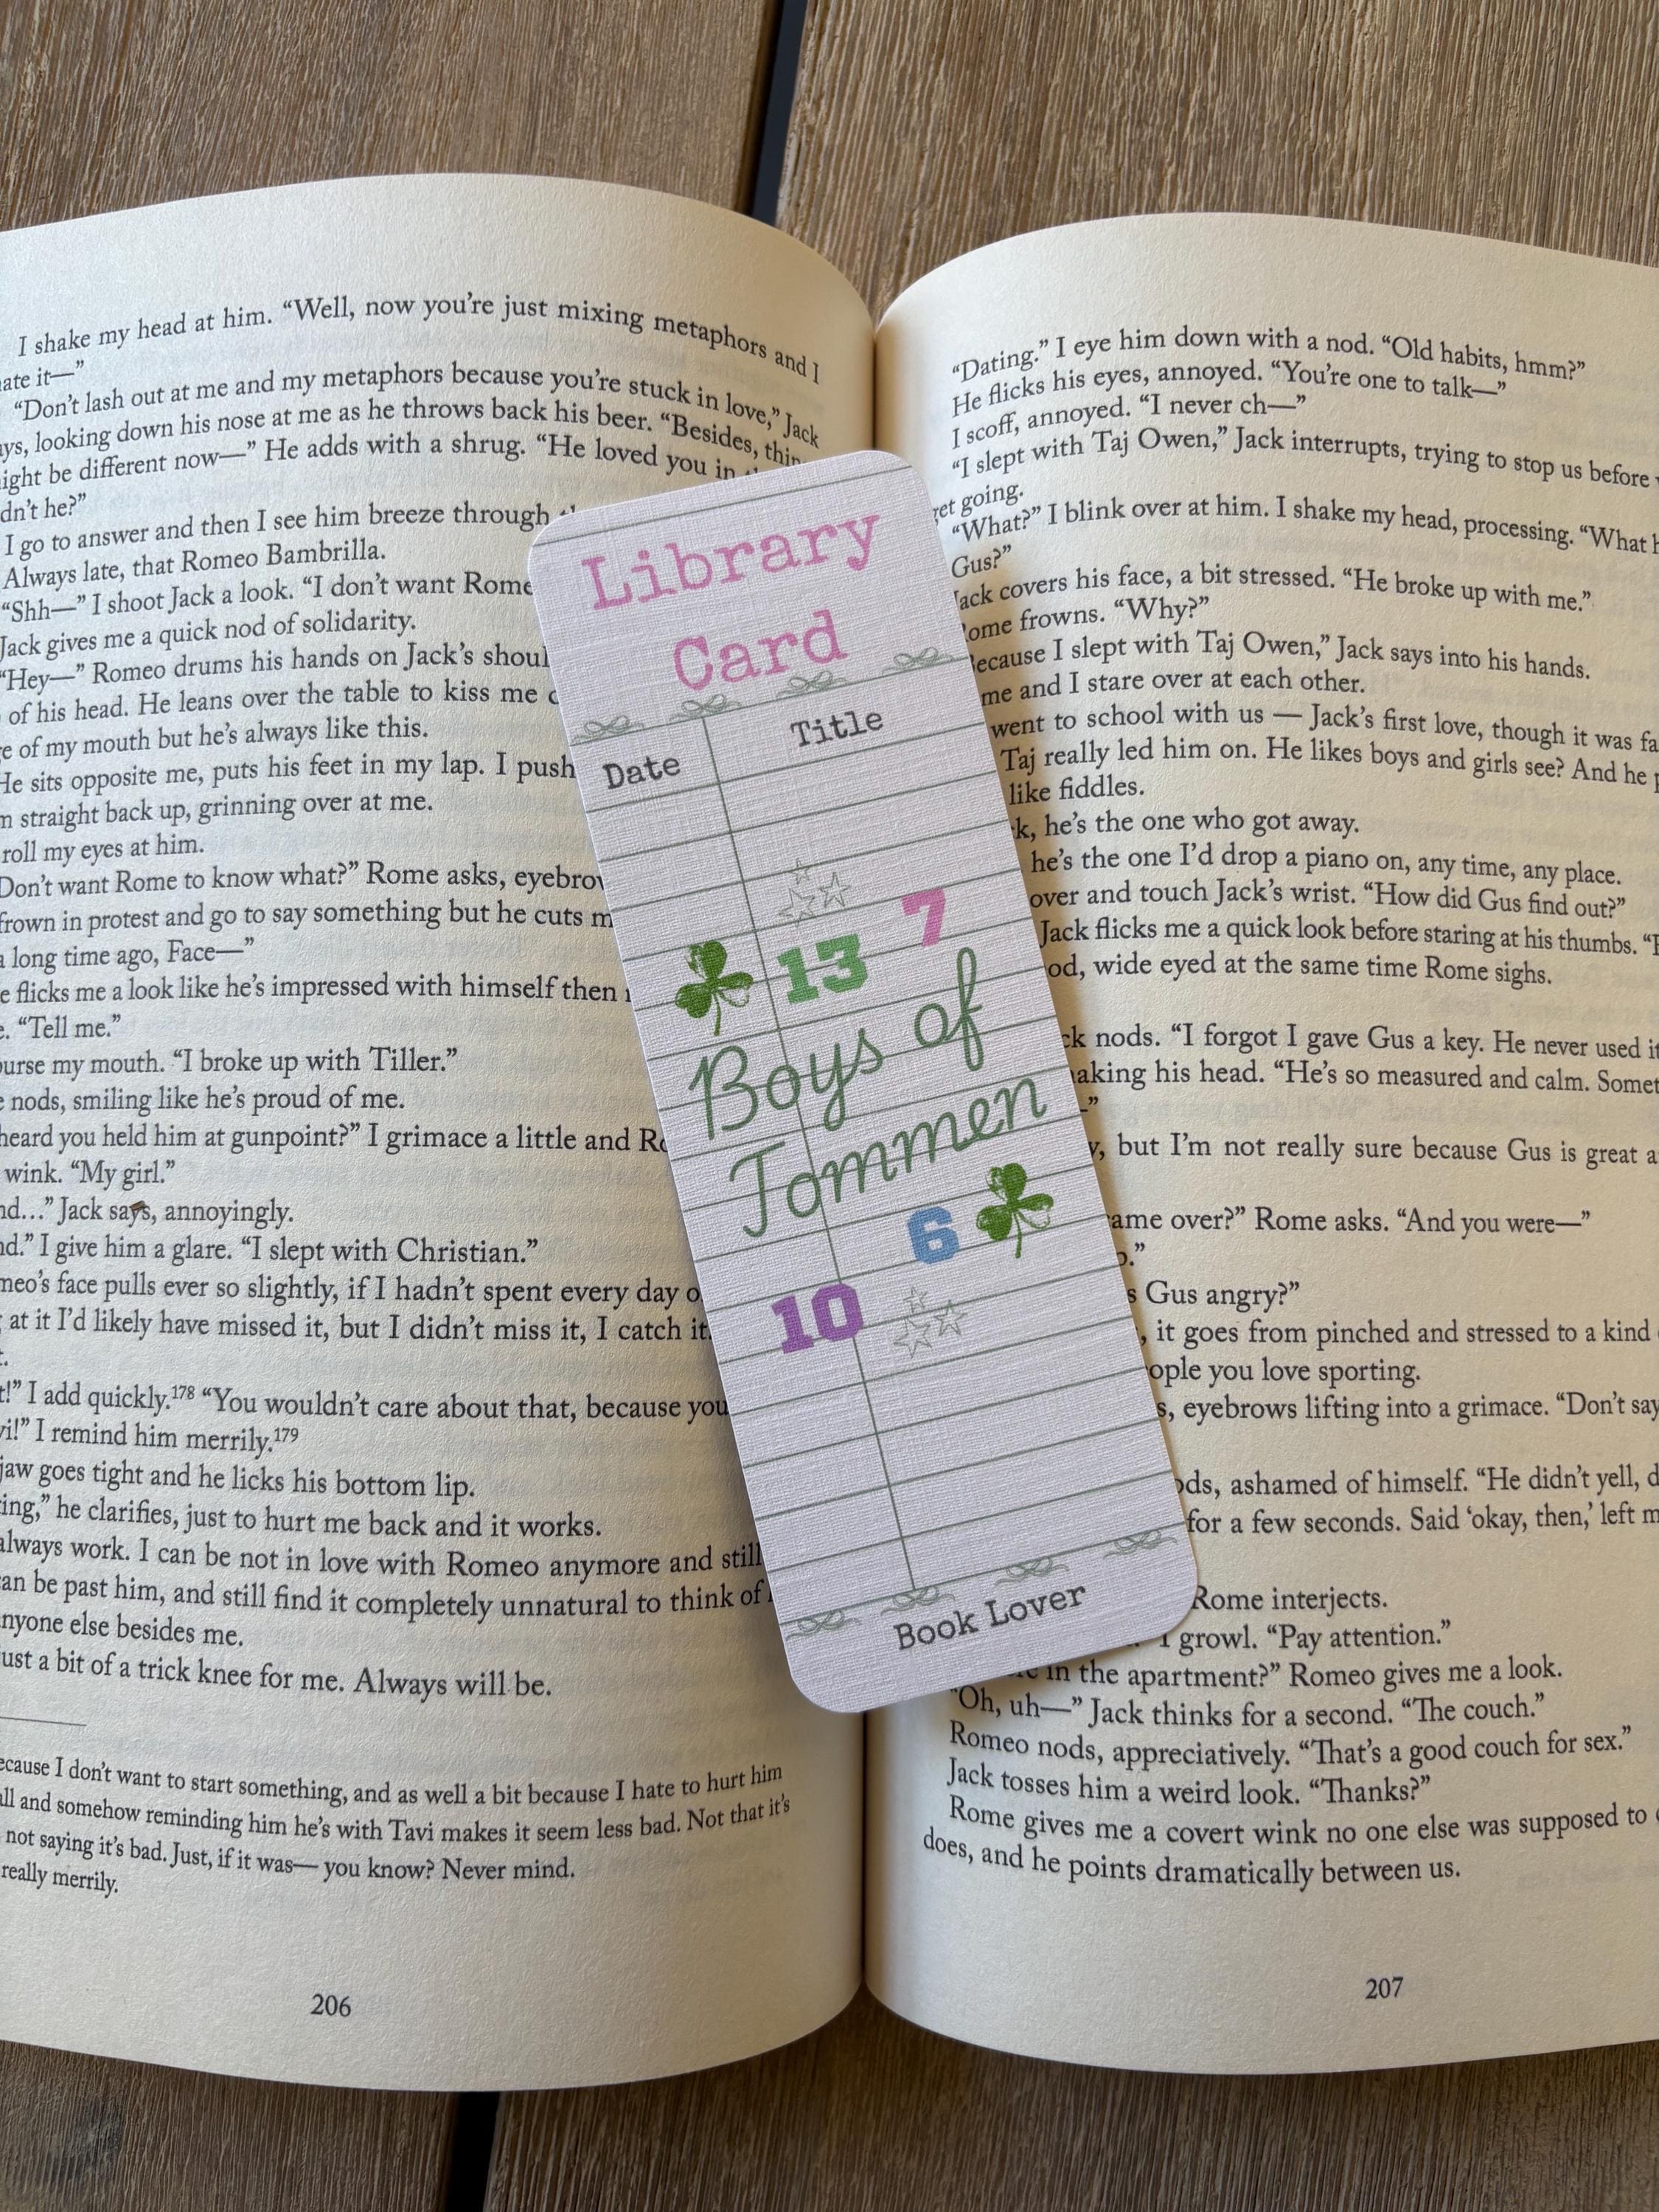 I shake my head at him. “Well, now you’re just mixing metaphors and I
it—”
“Don’t lash out at me and my metaphors because you’re stuck in love,” Jack
looking down his nose at me as he throws back his beer. “Besides,
be different now—” He adds with a shrug. “He loved you in
he?”
I go to answer and then I see him breeze through
Always late, that Romeo Bambrilla.
“Shh—” I shoot Jack a look. “I don’t want
Jack gives me a quick nod of solidarity.
“Hey—” Romeo drums his hands on Jack’s
of his head. He leans over the table to kiss me
of my mouth but he’s always like this.
He sits opposite me, puts his feet in my lap. I push
straight back up, grinning over at me.
roll my eyes at him.
Don’t want Rome to know what?” Rome asks,
frown in protest and go to say something but he cuts
a long time ago, Face—”
flicks me a look like he’s impressed with himself then
“Tell me.”
my mouth. “I broke up with Tiller.”
nods, smiling like he’s proud of me.
heard you held him at gunpoint?” I grimace a little and
wink. “My girl.”
Jack says, annoyingly.
I give him a glare. “I slept with Christian.”
face pulls ever so slightly, if I hadn’t spent every day
at it I’d likely have missed it, but I didn’t miss it, I catch it
I add quickly.178 “You wouldn’t care about that, because you
I remind him merrily.179
jaw goes tight and he licks his bottom lip.
he clarifies, just to hurt me back and it works.
always work. I can be not in love with Romeo anymore and still
can be past him, and still find it completely unnatural to think of
anyone else besides me.
a bit of a trick knee for me. Always will be.
I don’t want to start something, and as well a bit because I hate to hurt him
and somehow reminding him he’s with Tavi makes it seem less bad. Not that it’s
not saying it’s bad. Just, if it was— you know? Never mind.
really merrily.
206
Library
Card
Date Title
13 7
Boys of
Tommen
6
10
Book Lover
“Dating.” I eye him down with a nod. “Old habits, hmm?”
He flicks his eyes, annoyed. “You’re one to talk—”
I scoff, annoyed. “I never ch—”
“I slept with Taj Owen,” Jack interrupts, trying to stop us before
get going.
“What?” I blink over at him. I shake my head, processing. “What
Gus?”
Jack covers his face, a bit stressed. “He broke up with me.”
Rome frowns. “Why?”
“Because I slept with Taj Owen,” Jack says into his hands.
and I stare over at each other.
went to school with us — Jack’s first love, though it was
Taj really led him on. He likes boys and girls see? And he
like fiddles.
he’s the one who got away.
he’s the one I’d drop a piano on, any time, any place.
over and touch Jack’s wrist. “How did Gus find out?”
Jack flicks me a quick look before staring at his thumbs.
wide eyed at the same time Rome sighs.
nods. “I forgot I gave Gus a key. He never used
his head. “He’s so measured and calm.
but I’m not really sure because Gus is great
over?” Rome asks. “And you were—”
Gus angry?”
it goes from pinched and stressed to a kind
you love sporting.
eyebrows lifting into a grimace. “Don’t say
ashamed of himself. “He didn’t yell,
for a few seconds. Said ‘okay, then,’ left
Rome interjects.
I growl. “Pay attention.”
in the apartment?” Romeo gives me a look.
“Oh, uh—” Jack thinks for a second. “The couch.”
Romeo nods, appreciatively. “That’s a good couch for sex.”
Jack tosses him a weird look. “Thanks?”
Rome gives me a covert wink no one else was supposed to
does, and he points dramatically between us.
207